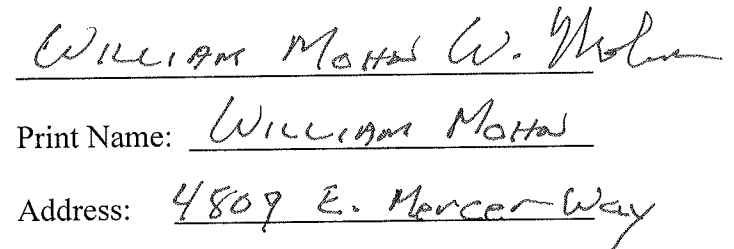 WILLIAM MOHN W. Mohn
Print Name: WILLIAM MOHN
Address: 4809 E. Mercer Way